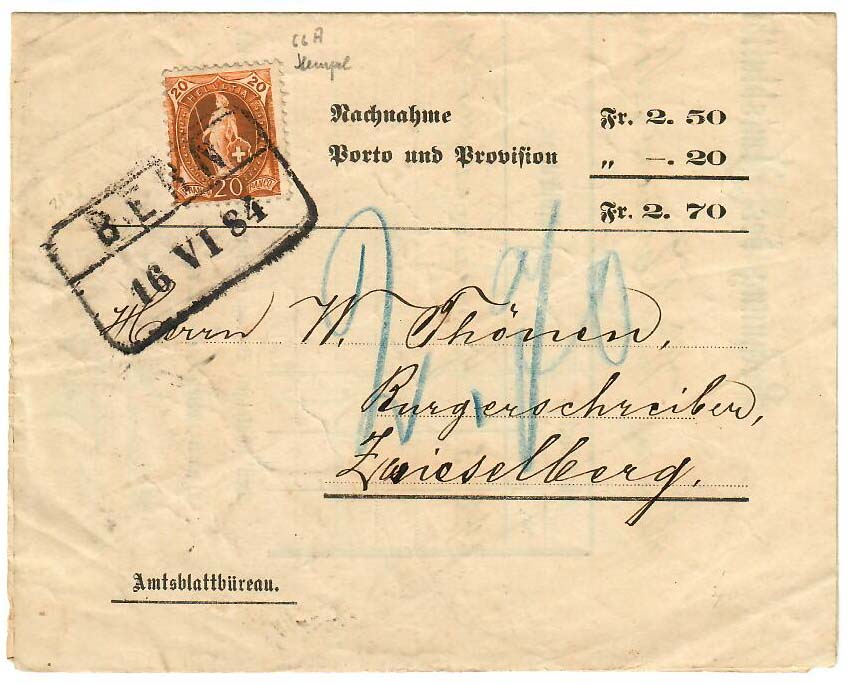 66A
20 HELVETIA 20
FRANCO 20 FRANCO
BERN
16 VI 84
Nachnahme Fr. 2. 50
Porto und Provision „ —. 20
Fr. 2. 70
2.70
Herrn W. Thönen,
Burgerschreiber,
Zwieselberg.
Amtsblattbüreau.